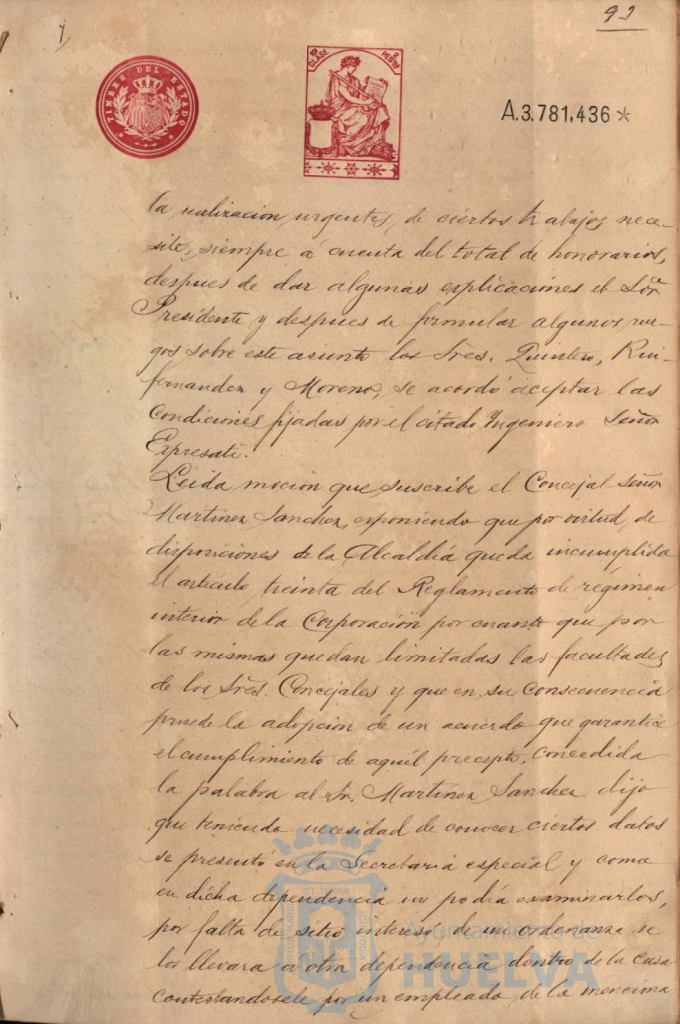 93
TIMBRE DEL ESTADO
10ª CLASE
2 PESTAS
A.3.781,436*
la realizacion urgentes, de ciertos trabajos nece-
site, siempre á cuenta del total de honorarios,
despues de dar algunas esplicaciones el Sor
Presidente y despues de formular algunos rue-
gos sobre este asunto los Sres. Quintero, Rui-
fernandez y Moreno, se acordó aceptar las
Condiciones fijadas por el citado Ingeniero Señor
Expresati.
Leida mocion que suscribe el Concejal Señor
Martinez Sanchez, exponiendo que por virtud, de
disposiciones de la Alcaldía queda incumplida
el articulo, treinta del Reglamento de régimen
interior de la Corporación por cuanto que por
las mismas quedan limitadas las facultades
de los Sres. Concejales y que en su consecuencia
procede la adopcion de un acuerdo que garantice
el cumplimiento de aquél precepto, Concedida
la palabra al Sr. Martinez Sanchez dijo
que teniendo necesidad de conocer ciertos datos
se presentó en la Secretaria especial y como
en dicha dependencia no podía examinarlos,
por falta de sitio interesó de un ordenanza se
los llevara á otra dependencia dentro de la Casa
Contestandosele por un empleado, de la menciona
Ayuntamiento de
HUELVA